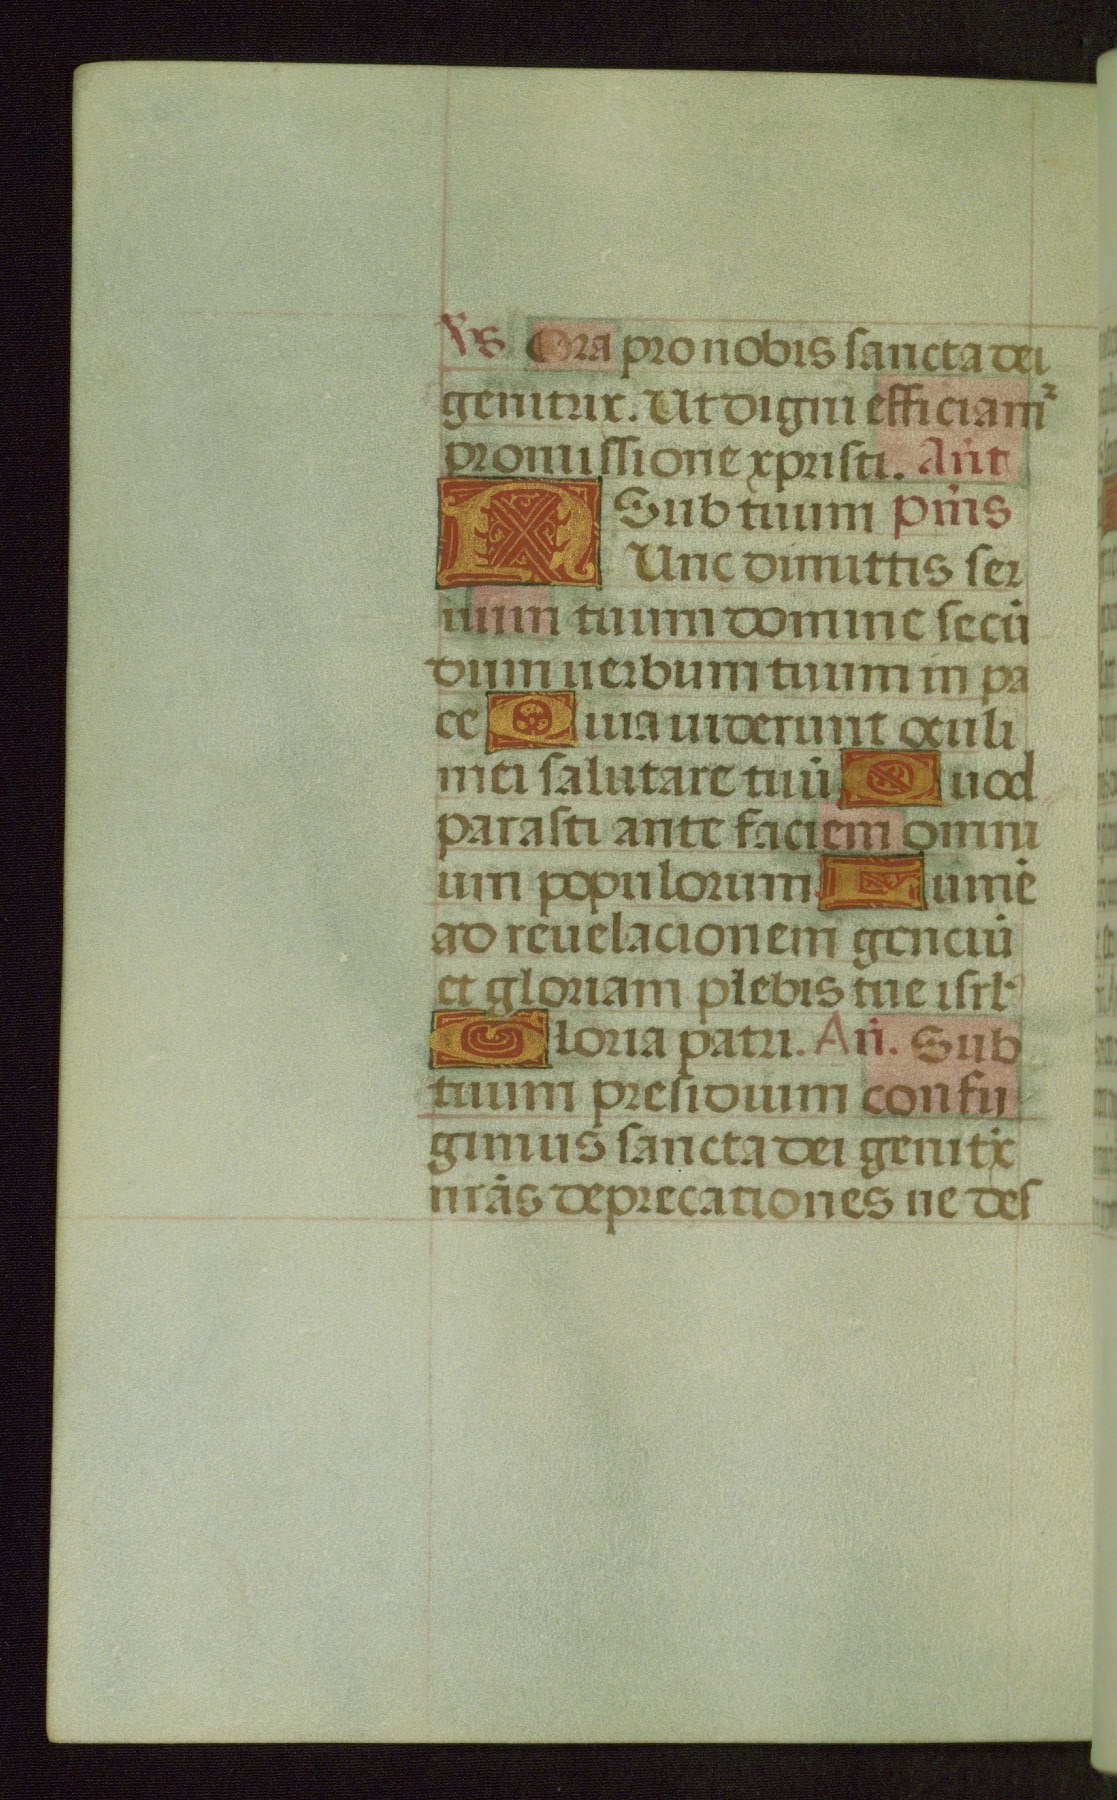 V̄s Ora pro nobis sancta dei
genitrix. Ut digni efficiamꝰ
promissione xpristi. Añt
Sub tuum Pm̄s
NUnc dimittis ser
uum tuum domine secū
dum uerbum tuum in pa
ce Quia uiderunt oculi
mei salutare tuū Quod
parasti ante faciem omni
um populorum. Lumē
ad reuelacionem genciū
et gloriam plebis tue isrl᾽
Gloria patri. An̄. Sub
tuum presidium confu
gimus sancta dei genitx̄
nrās deprecationes ne des